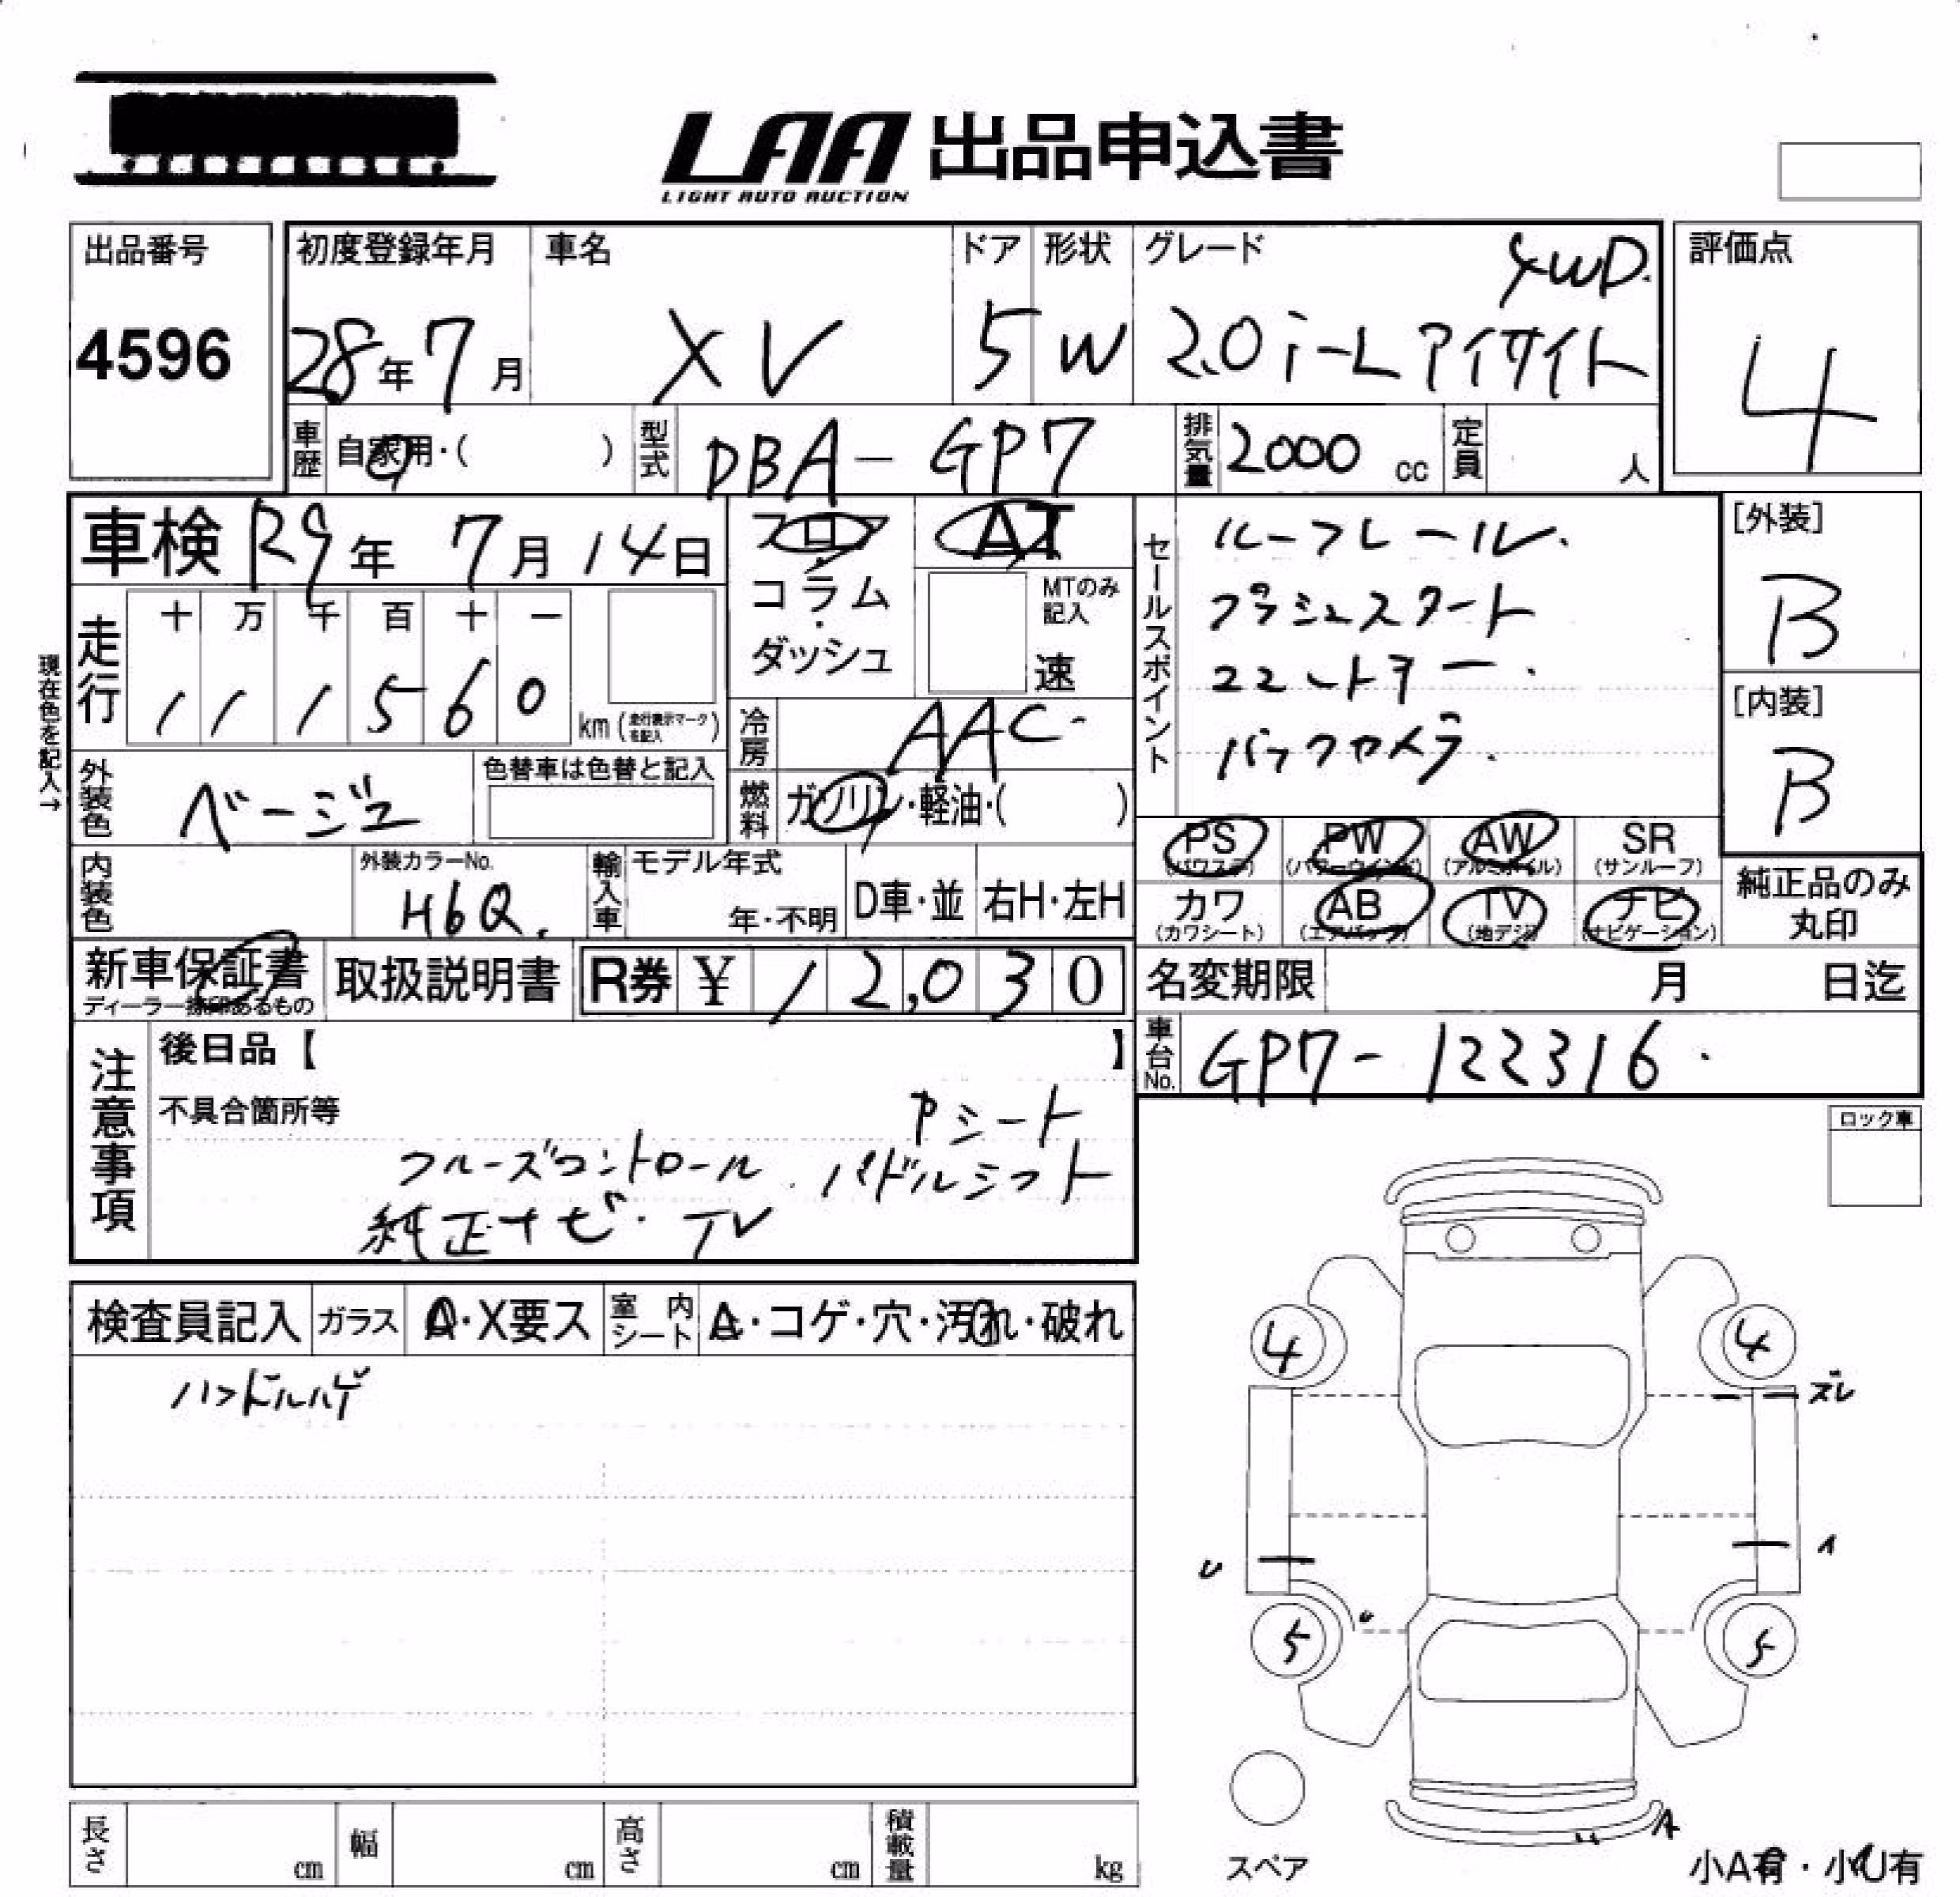 LAA 出品申込書
LIGHT AUTO AUCTION
出品番号
4596
初度登録年月
28年7月
車名
XV
ドア
5
形状
W
グレード
4WD.
2.0i-L アイサイト
評価点
4
車歴
自家用・( )
型式
DBA-GP7
排気量
2000 cc
定員
人
車検 R9年 7月 14日
フロア
コラム
・
ダッシュ
AT
MTのみ
記入
速
現在色を記入→
走行
十 万 千 百 十 一
1 1 1 5 6 0
km (走行表示マークを記入)
冷房
AAC
燃料
ガソリン・軽油・( )
外装色
ベージュ
色替車は色替と記入
内装色
外装カラーNo.
H6Q.
輸入車
モデル年式
年・不明
D車・並
右H・左H
セールスポイント
ルーフレール.
プッシュスタート
コーナー.
バックカメラ.
[外装]
B
[内装]
B
PS
(パワステ)
PW
(パワーウインド)
AW
(アルミホイル)
SR
(サンルーフ)
カワ
(カワシート)
AB
(エアバッグ)
TV
(地デジ)
ナビ
(ナビゲーション)
純正品のみ
丸印
新車保証書
ディーラー捺印あるもの
取扱説明書
R券 ¥ 12,030
名変期限 月 日迄
車台No.
GP7-122316.
注意事項
後日品【 】
不具合箇所等
Pシート
クルーズコントロール. パドルシフト
純正ナビ. TV
ロック車
検査員記入
ガラス
A・X要ス
室内シート
A・コゲ・穴・汚れ・破れ
ハンドルハゲ
4
4
ズレ
U
A
U
5
5
A
スペア
小A有・小U有
長さ
cm
幅
cm
高さ
cm
積載量
kg